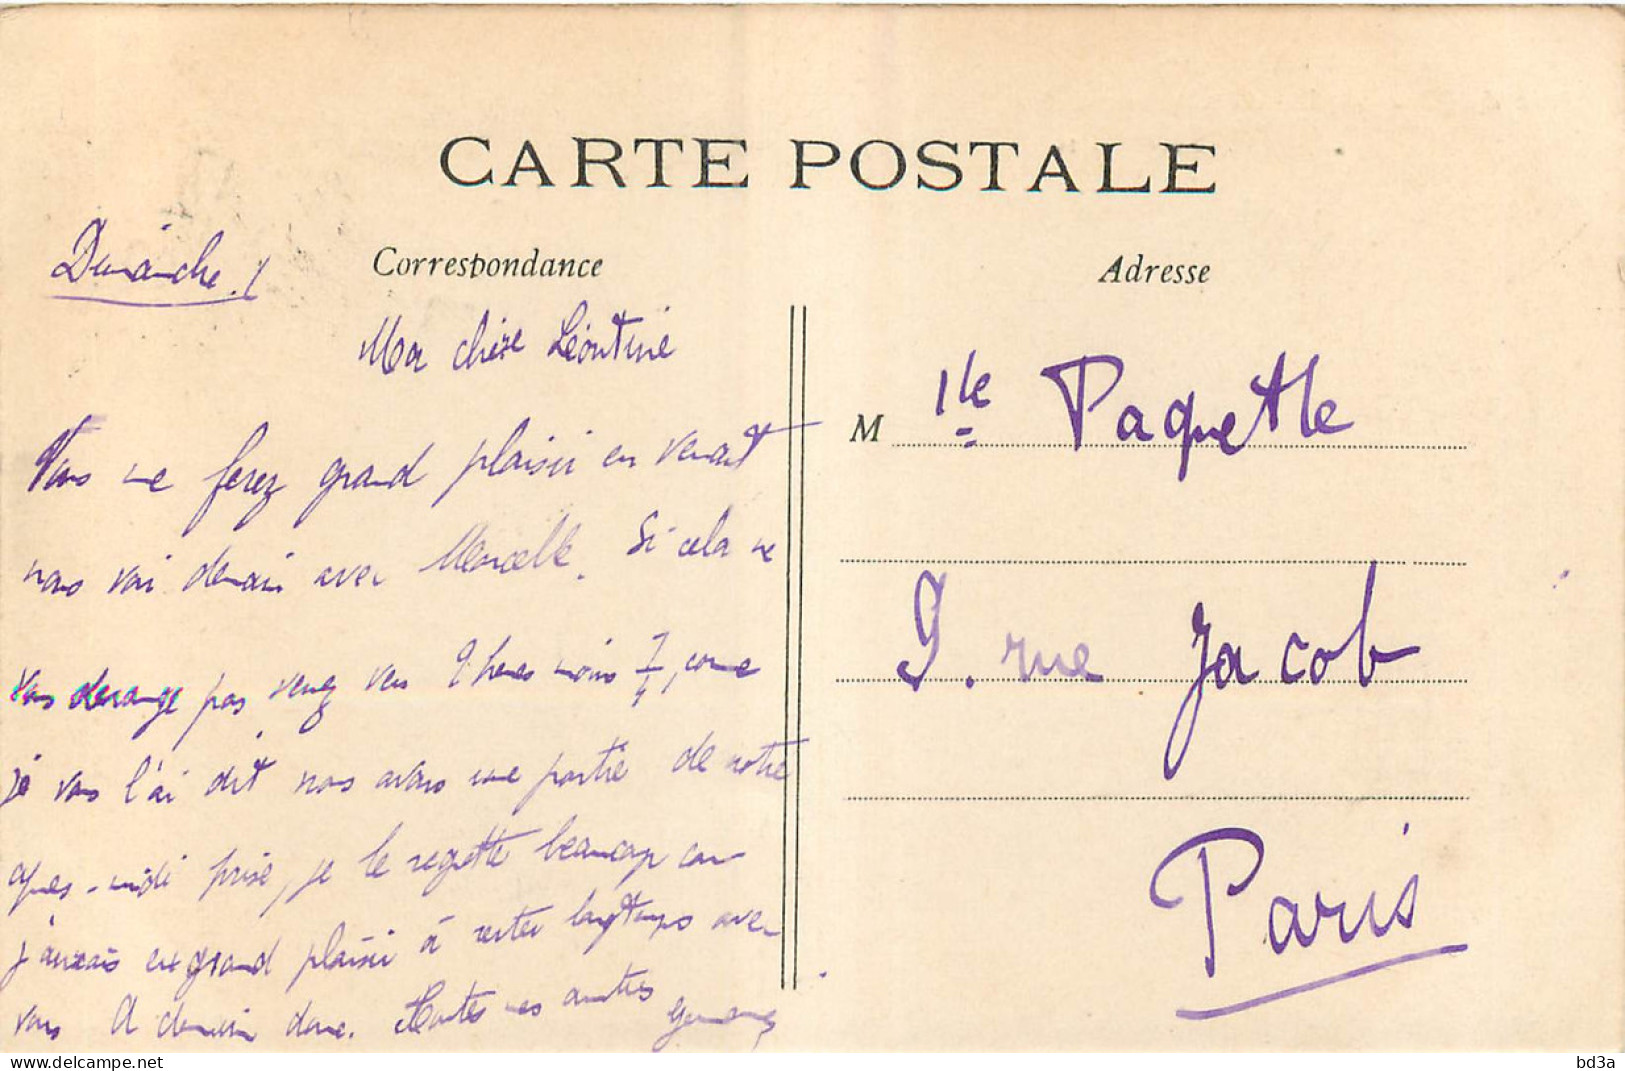 CARTE POSTALE
Correspondance
Adresse
Dimanche.
Ma chère Léontine
Vous me ferez grand plaisir en venant
nous voir demain avec Marcelle. Si cela ne
vous derange pas venez vers 2 heures moins 1/4, comme
je vous l'ai dit nous avons une partie de notre
après-midi prise, je le regrette beaucoup car
j'aurais eu grand plaisir à rester longtemps avec
vous A demain donc. Toutes mes amitiés
M lle Paquette
9. rue Jacob
Paris
bd3a